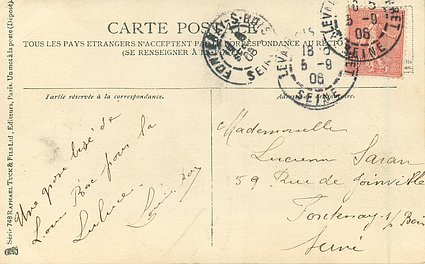 CARTE POSTALE
TOUS LES PAYS ETRANGERS N'ACCEPTENT PAS LA CORRESPONDANCE AU RECTO
(SE RENSEIGNER À LA
Partie réservée à la correspondance.
Adresse
FONTENAY-S-BOIS
SEINE
LEVALLOIS PERRET
18
5 -9
06
SEINE
5 -9
06
Série 748 RAPHAEL TUCK & FILS, Ltd, Editeurs, Paris. Un mot à la poste (Déposé)
Une grosse bisé de
pour la
Lulure.
Mademoiselle
Lucienne Saran
59 Rue de Joinville
Fontenay s/Bois
Seine